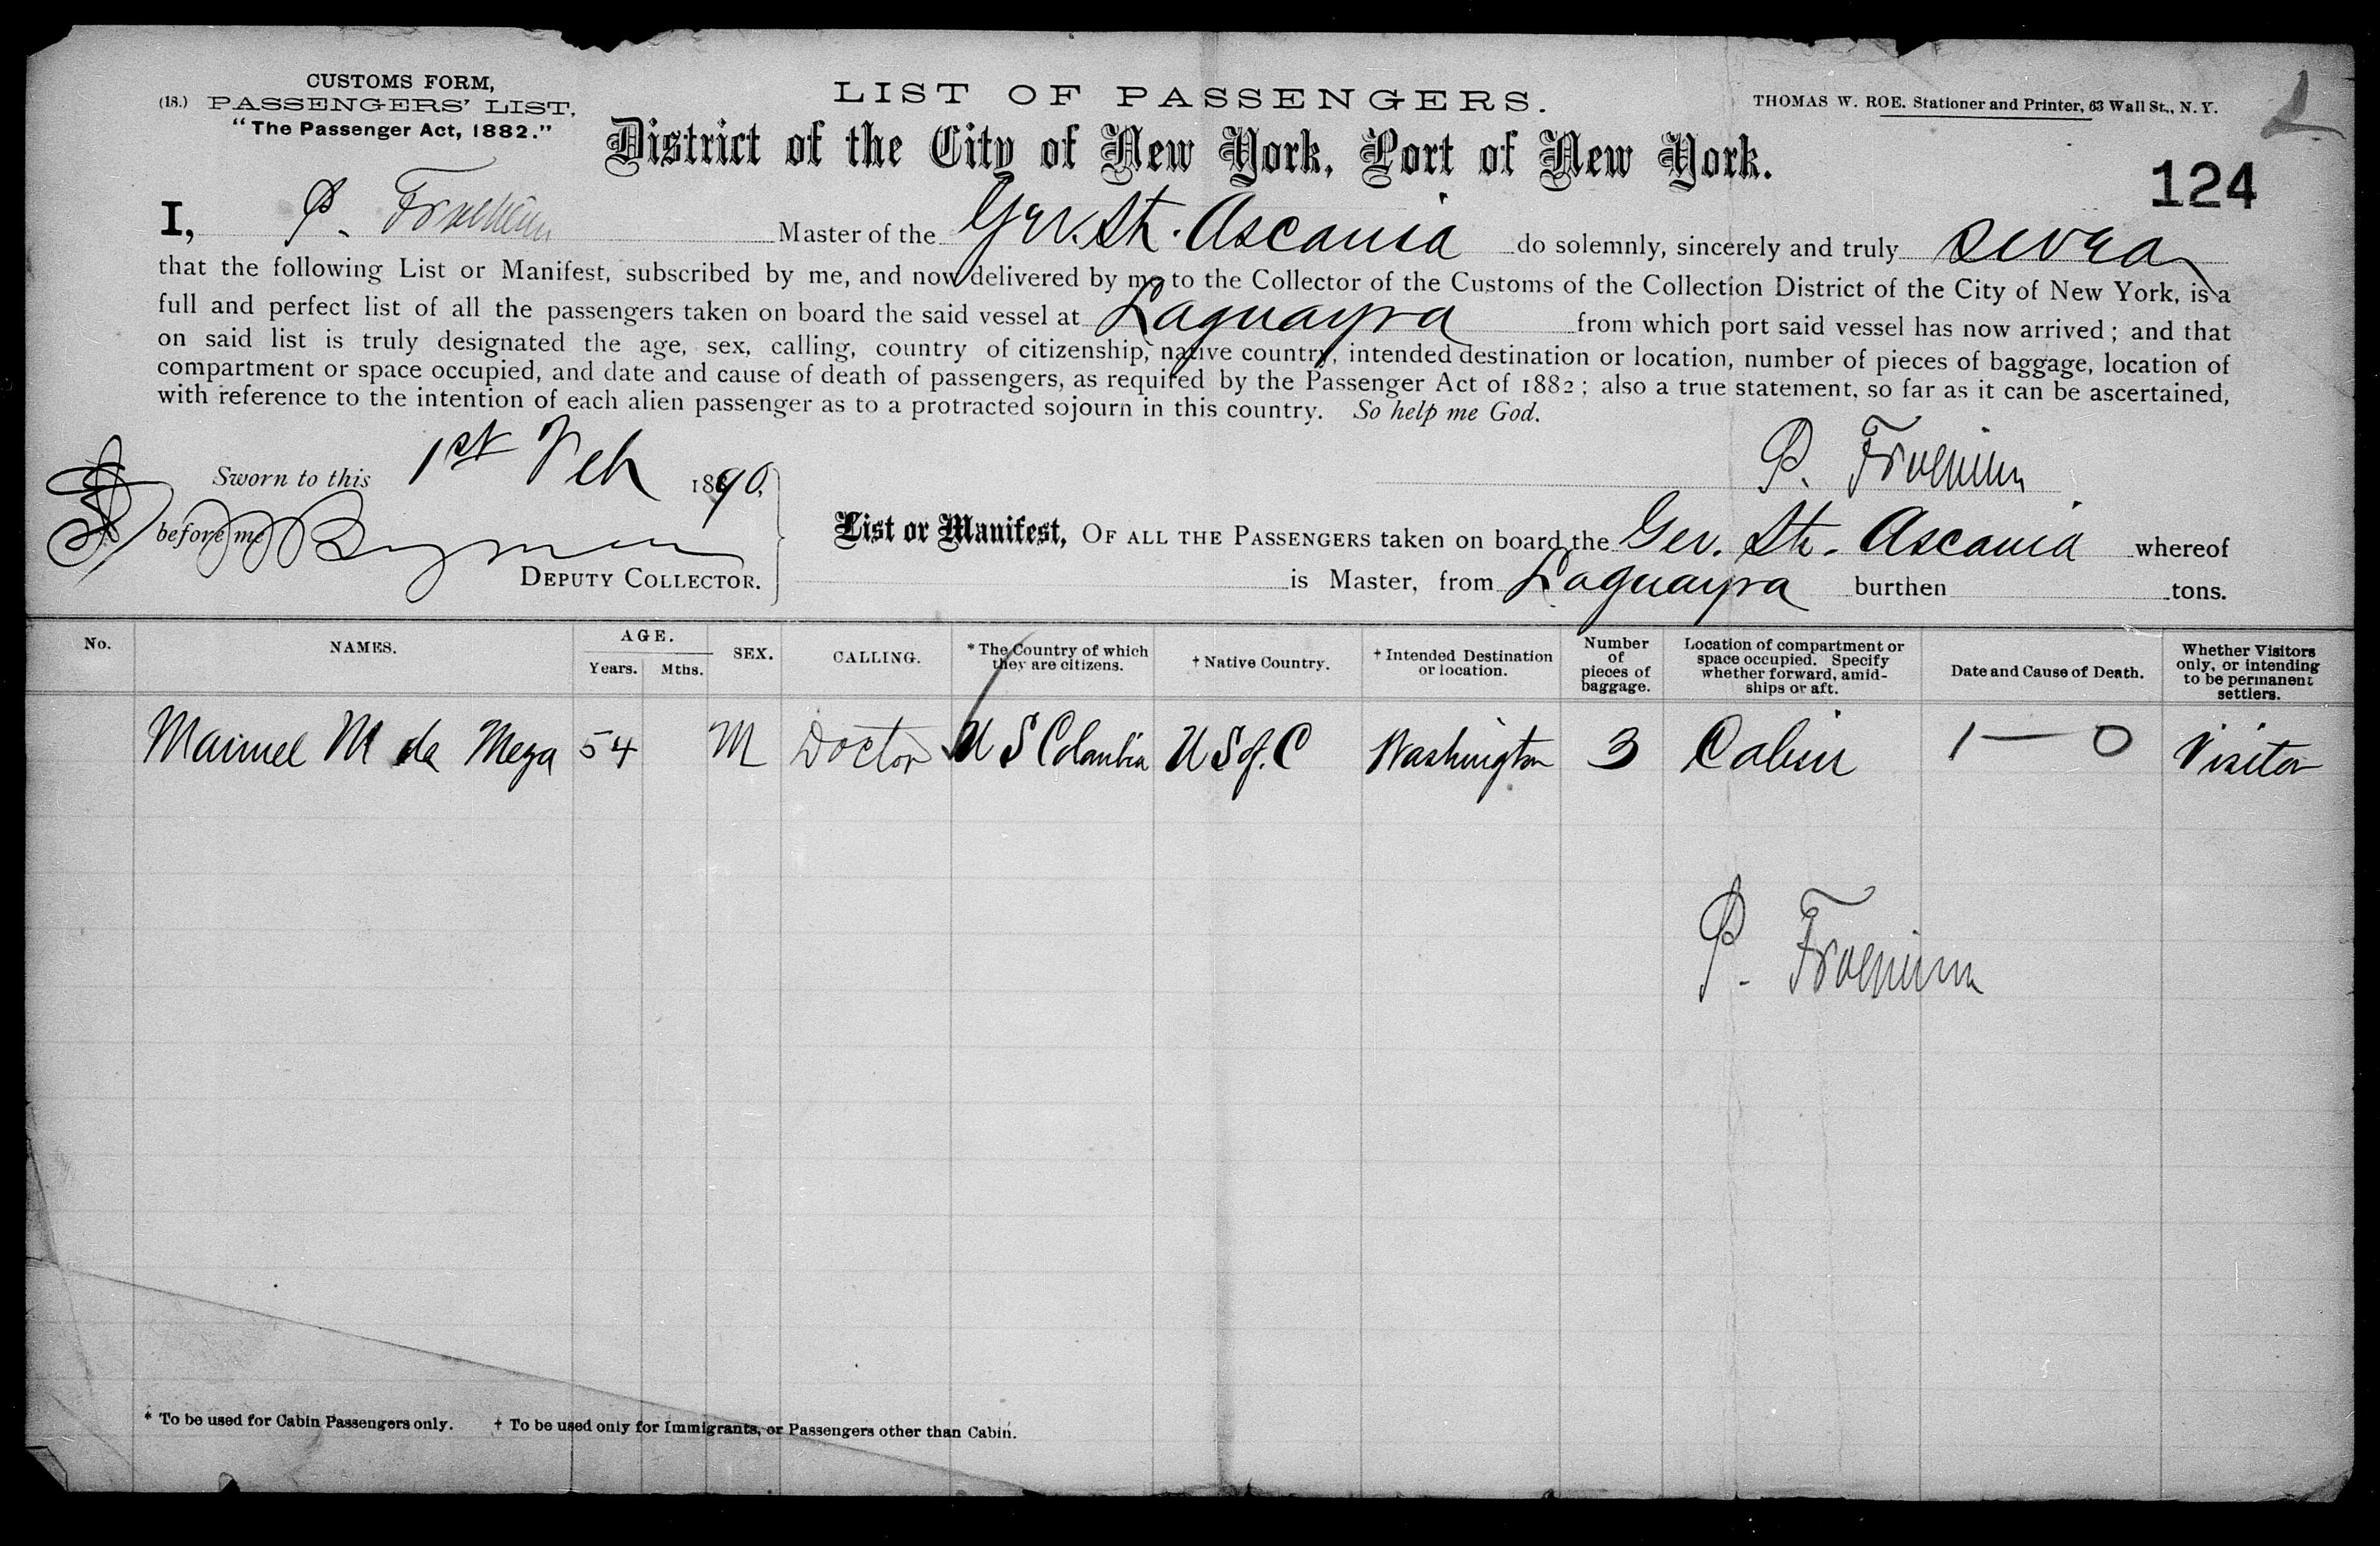 CUSTOMS FORM,
(18.) PASSENGERS' LIST,
"The Passenger Act, 1882."
LIST OF PASSENGERS.
THOMAS W. ROE. Stationer and Printer, 63 Wall St., N. Y.
District of the City of New York, Port of New York.
124
I, P. Master of the Ger. Str. Ascania do solemnly, sincerely and truly swear
that the following List or Manifest, subscribed by me, and now delivered by me to the Collector of the Customs of the Collection District of the City of New York, is a
full and perfect list of all the passengers taken on board the said vessel at Laguayra from which port said vessel has now arrived; and that
on said list is truly designated the age, sex, calling, country of citizenship, native country, intended destination or location, number of pieces of baggage, location of
compartment or space occupied, and date and cause of death of passengers, as required by the Passenger Act of 1882; also a true statement, so far as it can be ascertained,
with reference to the intention of each alien passenger as to a protracted sojourn in this country. So help me God.
P.
Sworn to this 1st Feb 1890,
before me
DEPUTY COLLECTOR.
List or Manifest, OF ALL THE PASSENGERS taken on board the Ger. Str. Ascania whereof
is Master, from Laguayra burthen tons.
No. NAMES. AGE. Years. Mths. SEX. CALLING. * The Country of which they are citizens. † Native Country. † Intended Destination or location. Number of pieces of baggage. Location of compartment or space occupied. Specify whether forward, amid-ships or aft. Date and Cause of Death. Whether Visitors only, or intending to be permanent settlers.
Manuel M de Meza 54 M Doctor U S Colombia U S of. C Washington 3 Cabin 1 — 0 Visitor
P.
* To be used for Cabin Passengers only. † To be used only for Immigrants, or Passengers other than Cabin.